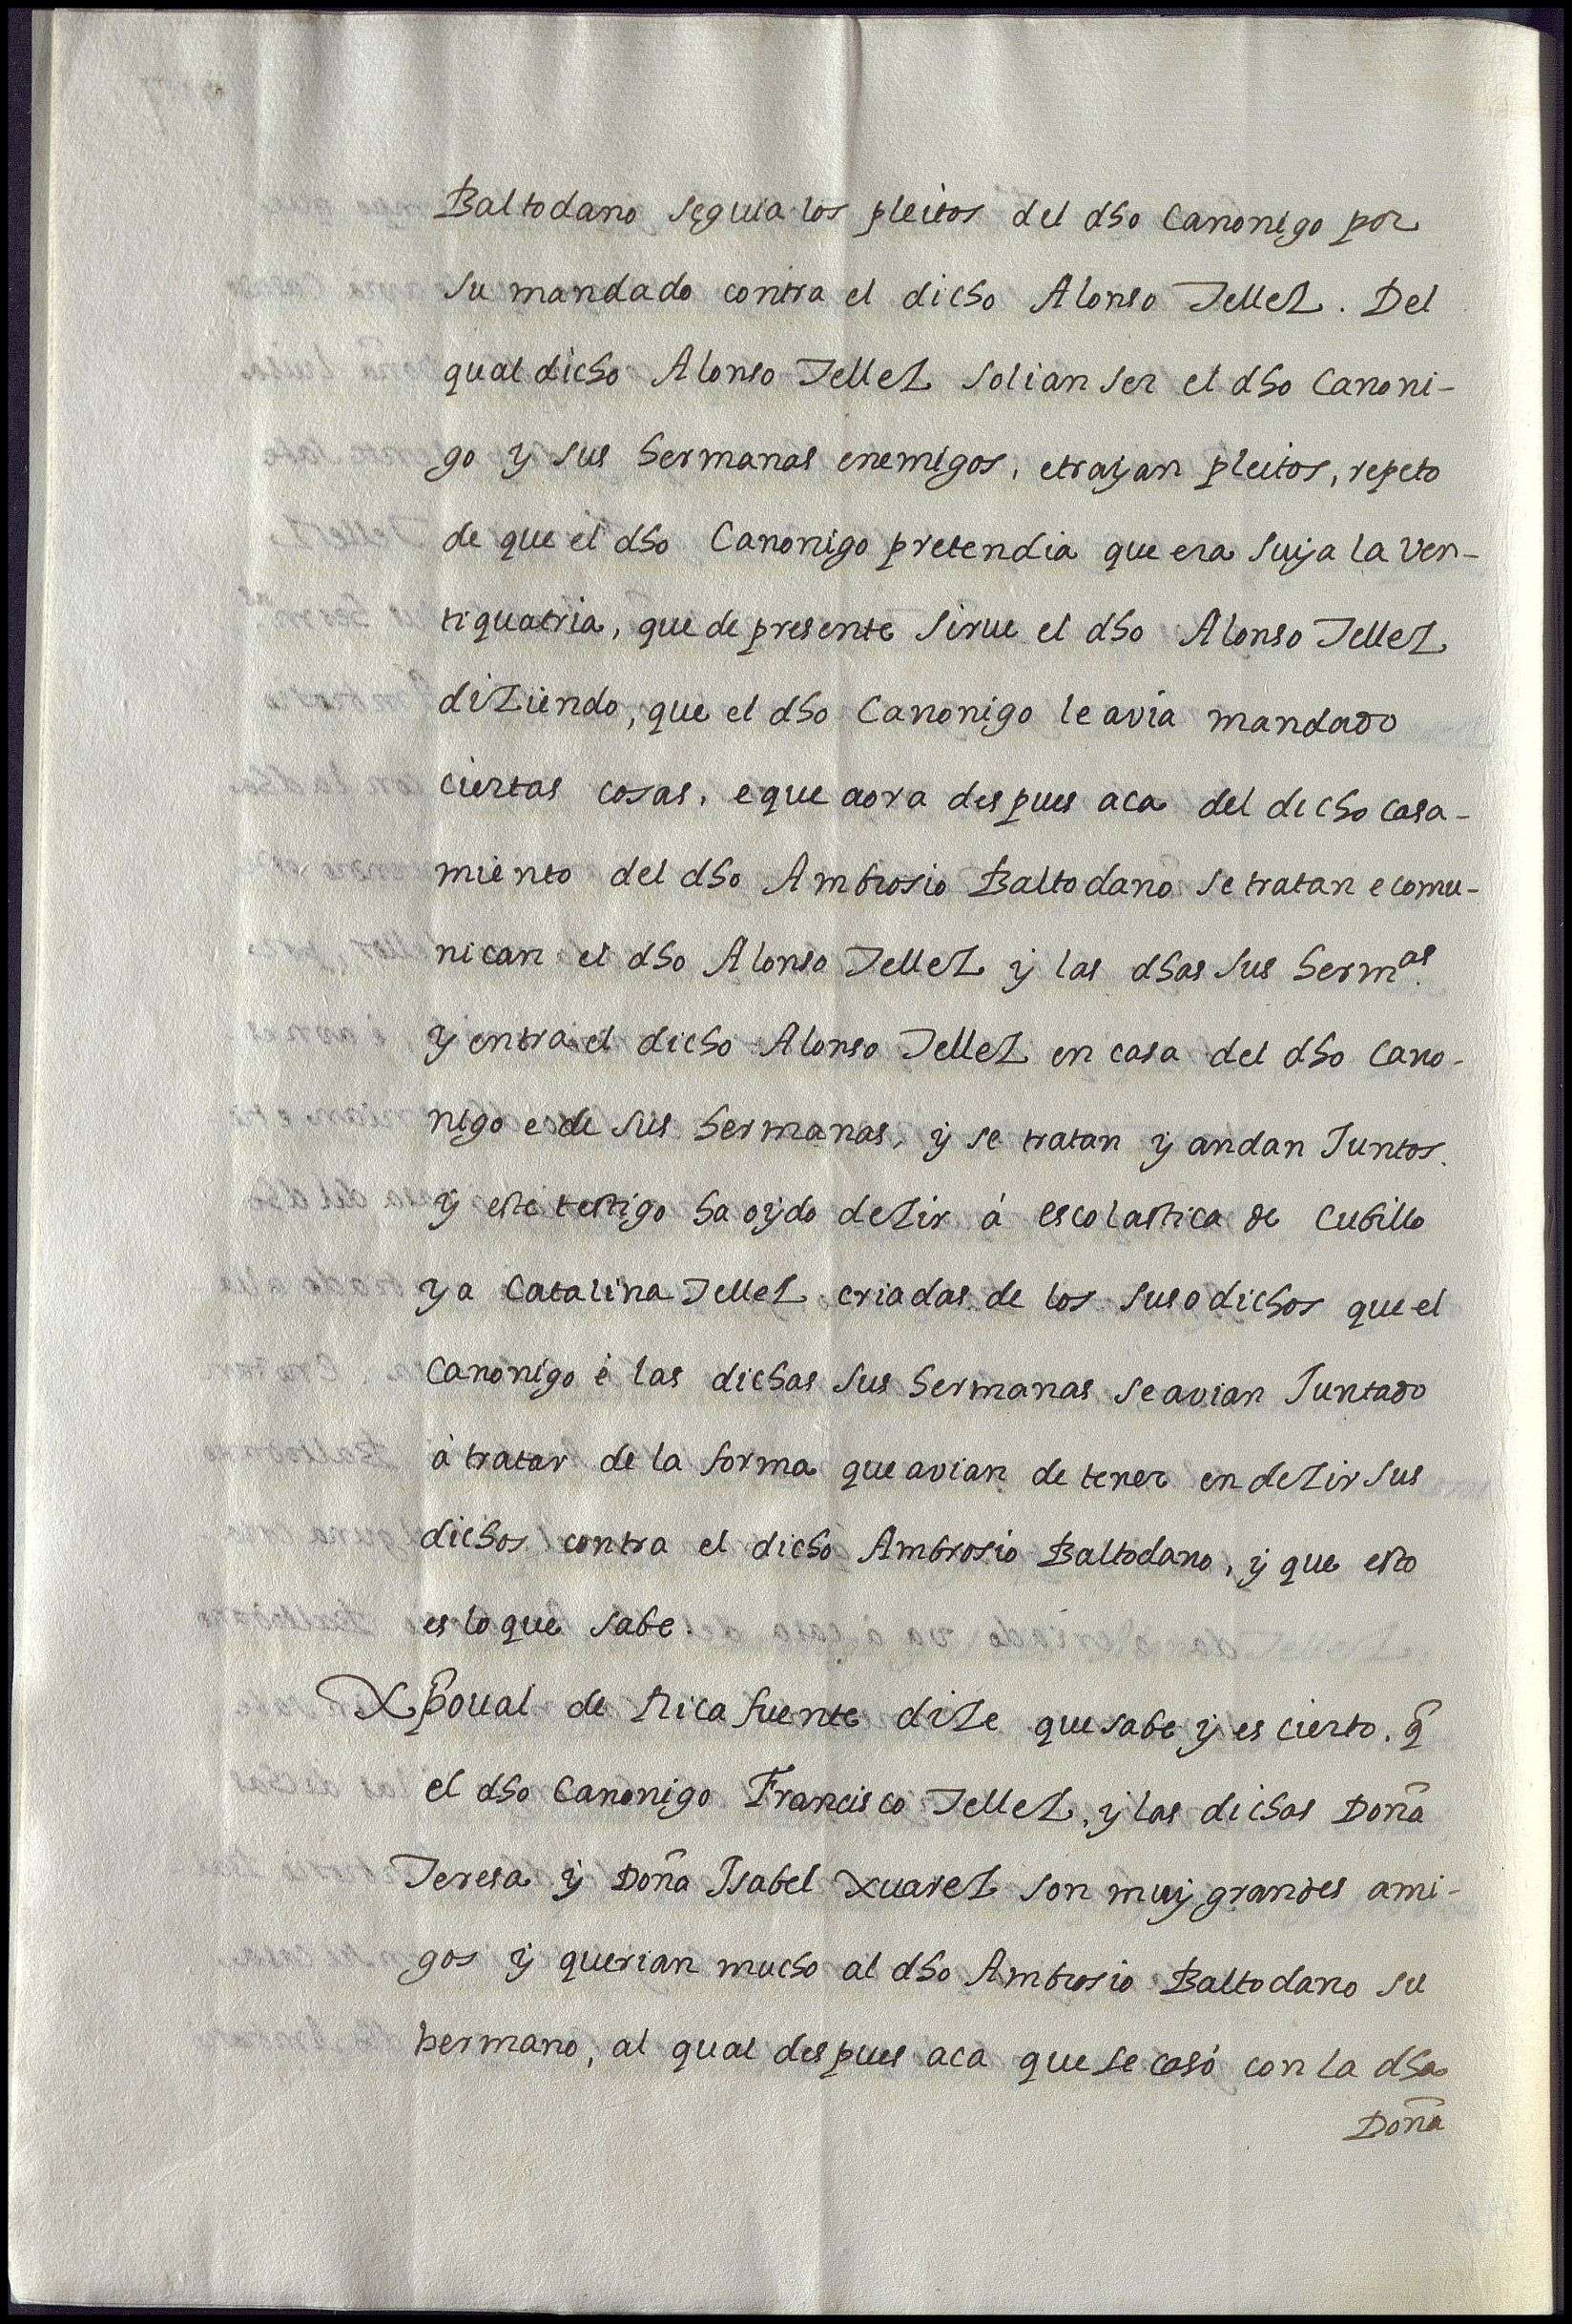 Baltodano seguia los pleitos del dho Canonigo por
su mandado contra el dicho Alonso Tellez. Del
qual dicho Alonso Tellez solian ser el dho Canoni-
go y sus hermanas enemigos, etrayan pleitos, repeto
de que el dho Canonigo pretendia que era suya la ven-
tiquatria, que de presente sirue el dho Alonso Tellez
diziendo, que el dho Canonigo le avia mandado
ciertas cosas, e que aora despues aca del dicho casa-
miento del dho Ambrosio Baltodano se tratan e comu-
nican el dho Alonso Tellez y las dhas sus herm.as
y entra el dicho Alonso Tellez en casa del dho Cano-
nigo e de sus hermanas, y se tratan y andan Juntos.
y este testigo ha oydo dezir á escolastica de Cubillo
y a Catalina Tellez criadas de los susodichos que el
Canonigo é las dichas sus hermanas se avian Juntado
á tratar de la forma que avian de tener en dezir sus
dichos contra el dicho Ambrosio Baltodano, y que esto
es lo que sabe.
Xp̄oual de Ricafuente dize que sabe y es cierto. q̄
el dho Canonigo Francisco Tellez, y las dichas Doña
Teresa y Doña Isabel Xuarez son muy grandes ami-
gos y querian mucho al dho Ambrosio Baltodano su
hermano, al qual despues aca que se casó con la dha
Doña